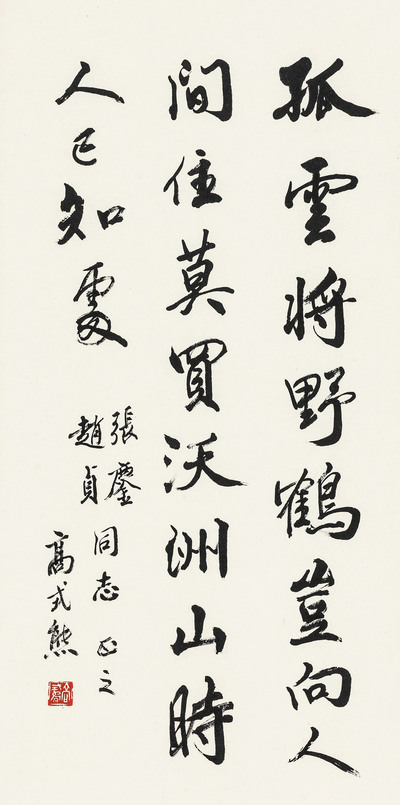 孤雲將野鶴豈向人
間住莫買沃洲山時
人已知處
張鏖
趙貞
同志正之
高式熊